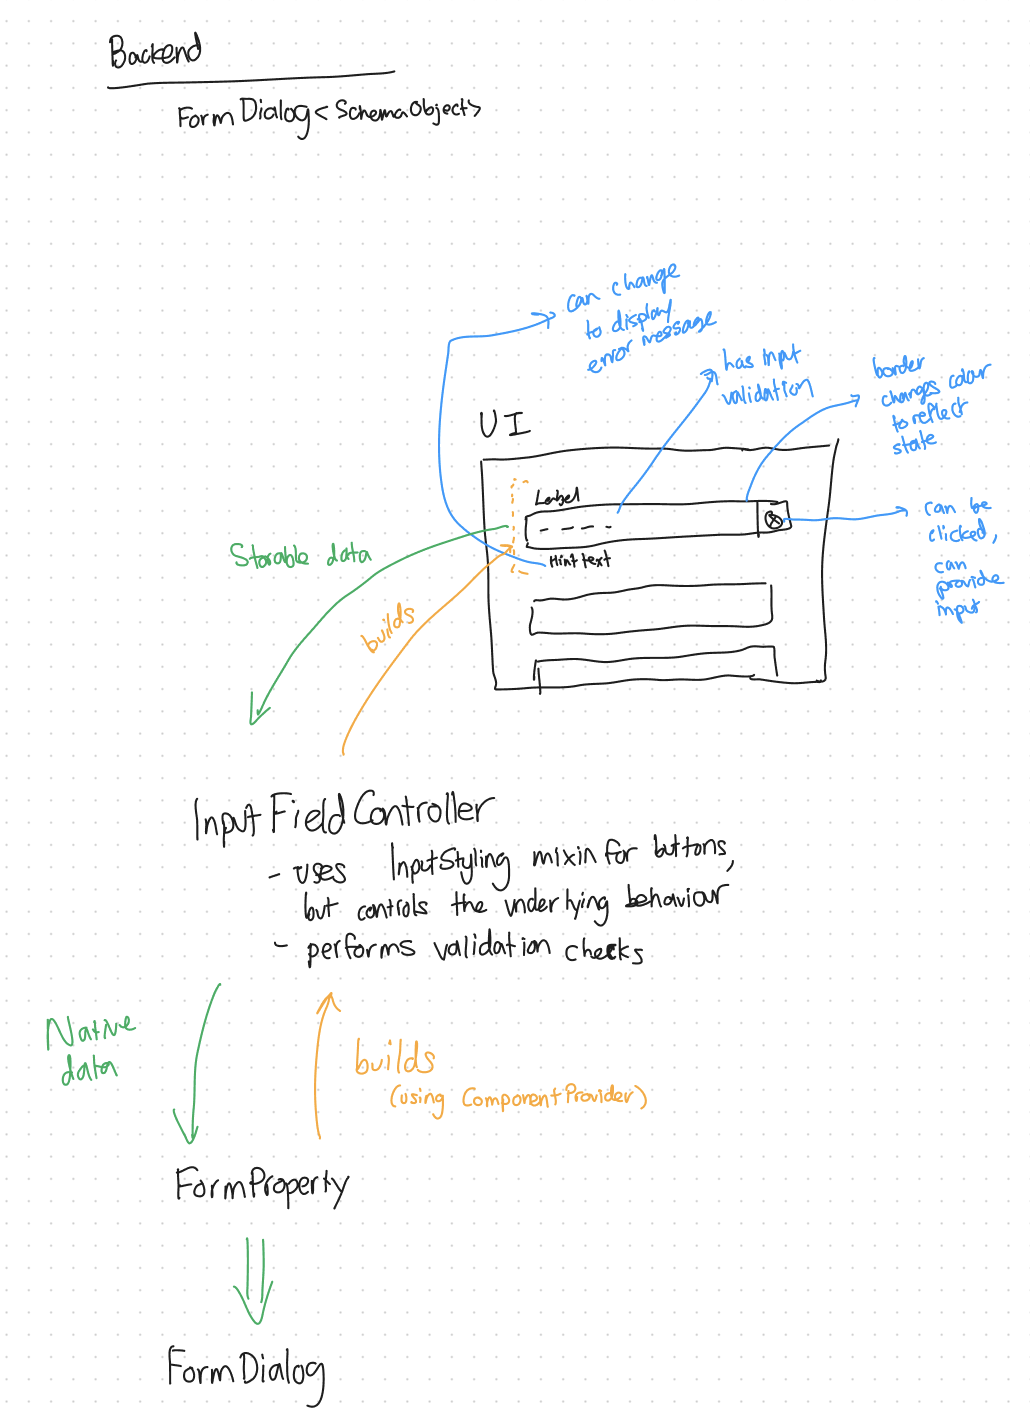 Backend
FormDialog<SchemaObject>
can change
to display
error message
has input
validation
border
changes colour
to reflect
state
UI
Label
Hint text
can be
clicked,
can
provide
input
Storable data
builds
InputFieldController
- uses InputStyling mixin for buttons,
but controls the underlying behaviour
- performs validation checks
Native
data
builds
(using ComponentProvider)
FormProperty
FormDialog